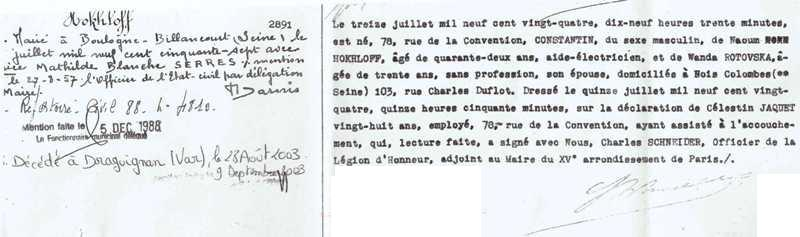 Hokhloff
2891
Marié à Boulogne-Billancourt (Seine) le
juillet mil neuf cent cinquante-sept avec
Mathilde Blanche SERRES mention
le 27-8-57 l'officier de l'Etat-civil par délégation
Répertoire Civil 88-4-4810
Mention faite le 5 DEC. 1988
Le Fonctionnaire municipal délégué
Décédé à Draguignan (Var), le 28 Août 2003
9 Septembre 2003
Le treize juillet mil neuf cent vingt-quatre, dix-neuf heures trente minutes,
est né, 78, rue de la Convention, CONSTANTIN, du sexe masculin, de Naoum
HOKHLOFF, âgé de quarante-deux ans, aide-électricien, et de Wanda ROTOVSKA, â-
gée de trente ans, sans profession, son épouse, domiciliés à Bois Colombes(
Seine) 103, rue Charles Duflot. Dressé le quinze juillet mil neuf cent vingt-
quatre, quinze heures cinquante minutes, sur la déclaration de Célestin JAQUET
vingt-huit ans, employé, 78, rue de la Convention, ayant assisté à l'accouche-
ment, qui, lecture faite, a signé avec Nous, Charles SCHNEIDER, Officier de la
Légion d'Honneur, adjoint au Maire du XV° arrondissement de Paris./.